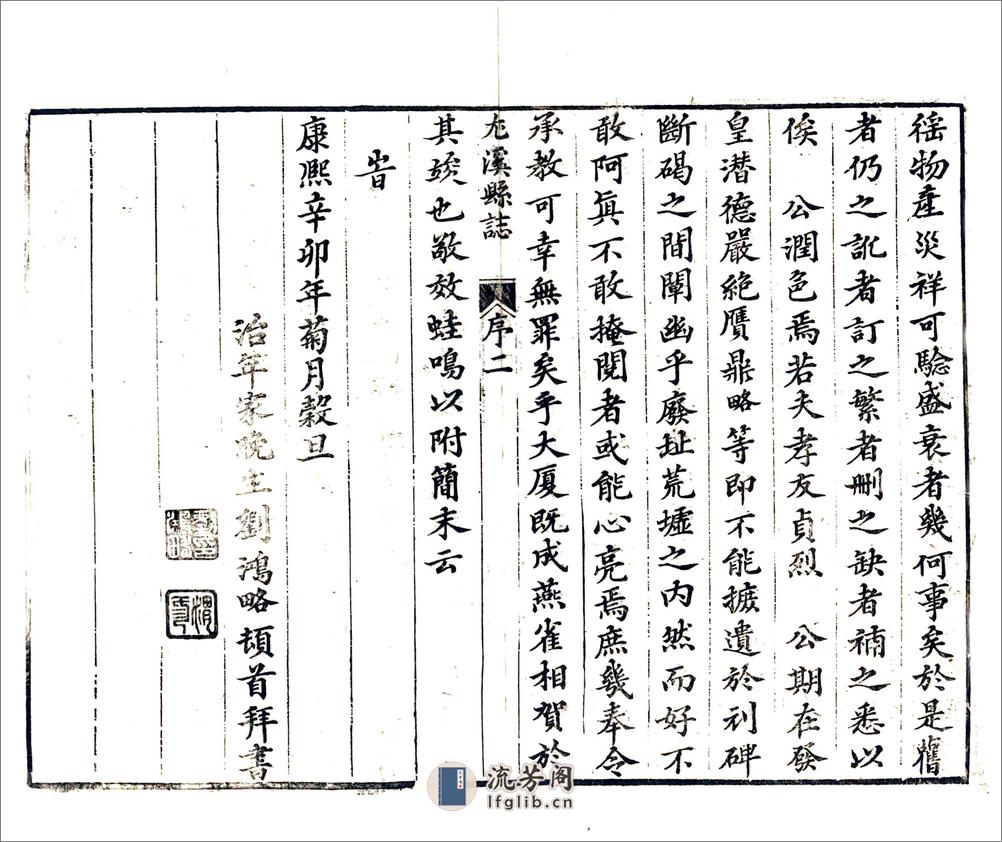 徭物產災祥可驗盛衰者幾何事矣於是舊
者仍之訛者訂之繁者刪之缺者補之悉以
俟 公潤色焉若夫孝友貞烈 公期在發
皇潛德嚴絕贋鼎略等即不能摭遺於刋碑
斷碣之間闡幽乎廢址荒墟之內然而好不
敢阿真不敢掩閱者或能心亮焉庶幾奉令
承教可幸無罪矣乎大厦既成燕雀相賀於
尤溪縣誌 序二
其竣也敬效蛙鳴以附簡末云
旹
康熙辛卯年菊月穀旦
治年家晚生劉鴻略頓首拜書
流芳阁
lfglib.cn